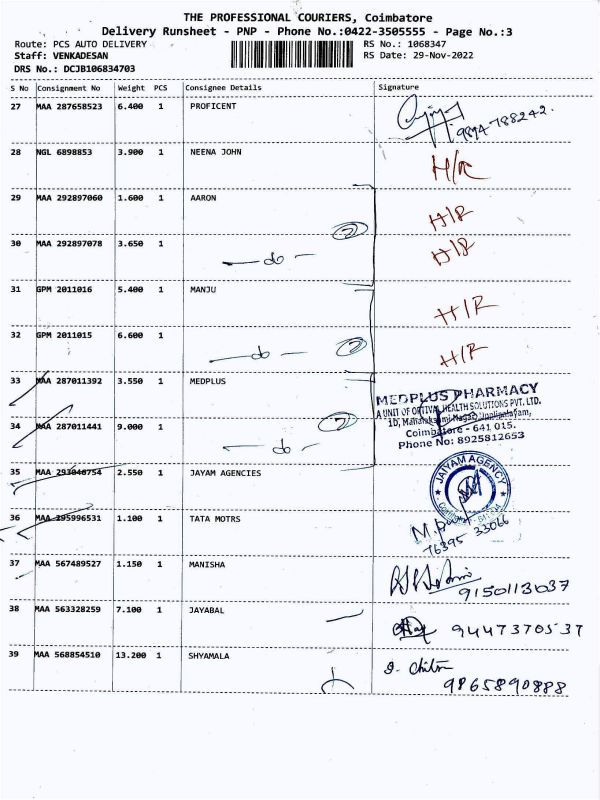 THE PROFESSIONAL COURIERS, Coimbatore
Delivery Runsheet - PNP - Phone No.:0422-3505555 - Page No.:3
Route: PCS AUTO DELIVERY RS No.: 1068347
Staff: VENKADESAN RS Date: 29-Nov-2022
DRS No.: DCJB106834703
S No Consignment No Weight PCS Consignee Details Signature
27 MAA 287658523 6.400 1 PROFICENT
9894788242.
28 NGL 6898853 3.900 1 NEENA JOHN H/R
29 MAA 292897060 1.600 1 AARON H/R
2
30 MAA 292897078 3.650 1 —do— H/R
31 GPM 2011016 5.400 1 MANJU H/R
32 GPM 2011015 6.600 1 —do— 2 H/R
33 MAA 287011392 3.550 1 MEDPLUS
MEDPLUS PHARMACY
A UNIT OF OPTIVAL HEALTH SOLUTIONS PVT. LTD.
34 MAA 287011441 9.000 1 —do— 2
Coimbatore - 641 015.
Phone No: 8925812653
35 MAA 293046754 2.550 1 JAYAM AGENCIES
JAIYAM AGENCY
36 MAA 295996531 1.100 1 TATA MOTRS
76395 33066
37 MAA 567489527 1.150 1 MANISHA
9150113037
38 MAA 563328259 7.100 1 JAYABAL
9447370537
39 MAA 568854510 13.200 1 SHYAMALA
9865890888